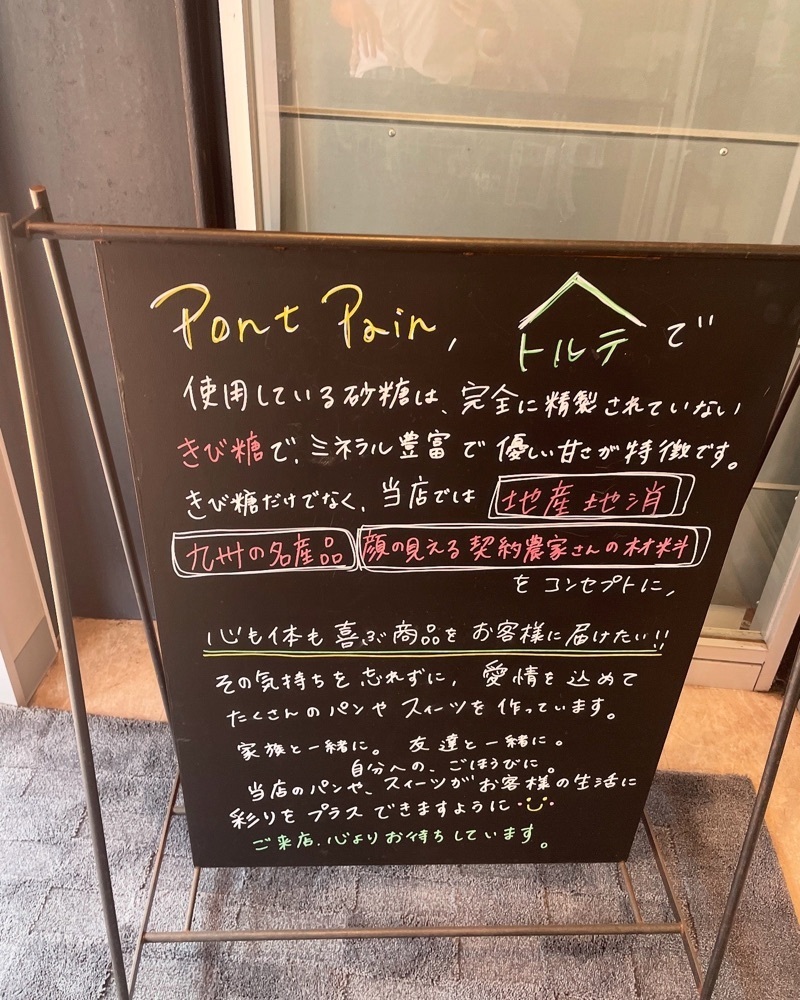 Pont Pain, トルテ で
使用している砂糖は、完全に精製されていない
きび糖で、ミネラル豊富で優しい甘さが特徴です。
きび糖だけでなく、当店では 地産地消
九州の名産品 顔の見える契約農家さんの材料
を コンセプトに、
心も体も喜ぶ商品をお客様に届けたい!!
その気持ちを忘れずに、愛情を込めて
たくさんのパンやスィーツを作っています。
家族と一緒に。 友達と一緒に。
自分への、ごほうびに。
当店のパンや、スィーツがお客様の生活に
彩りをプラスできますように
ご来店、心よりお待ちしています。